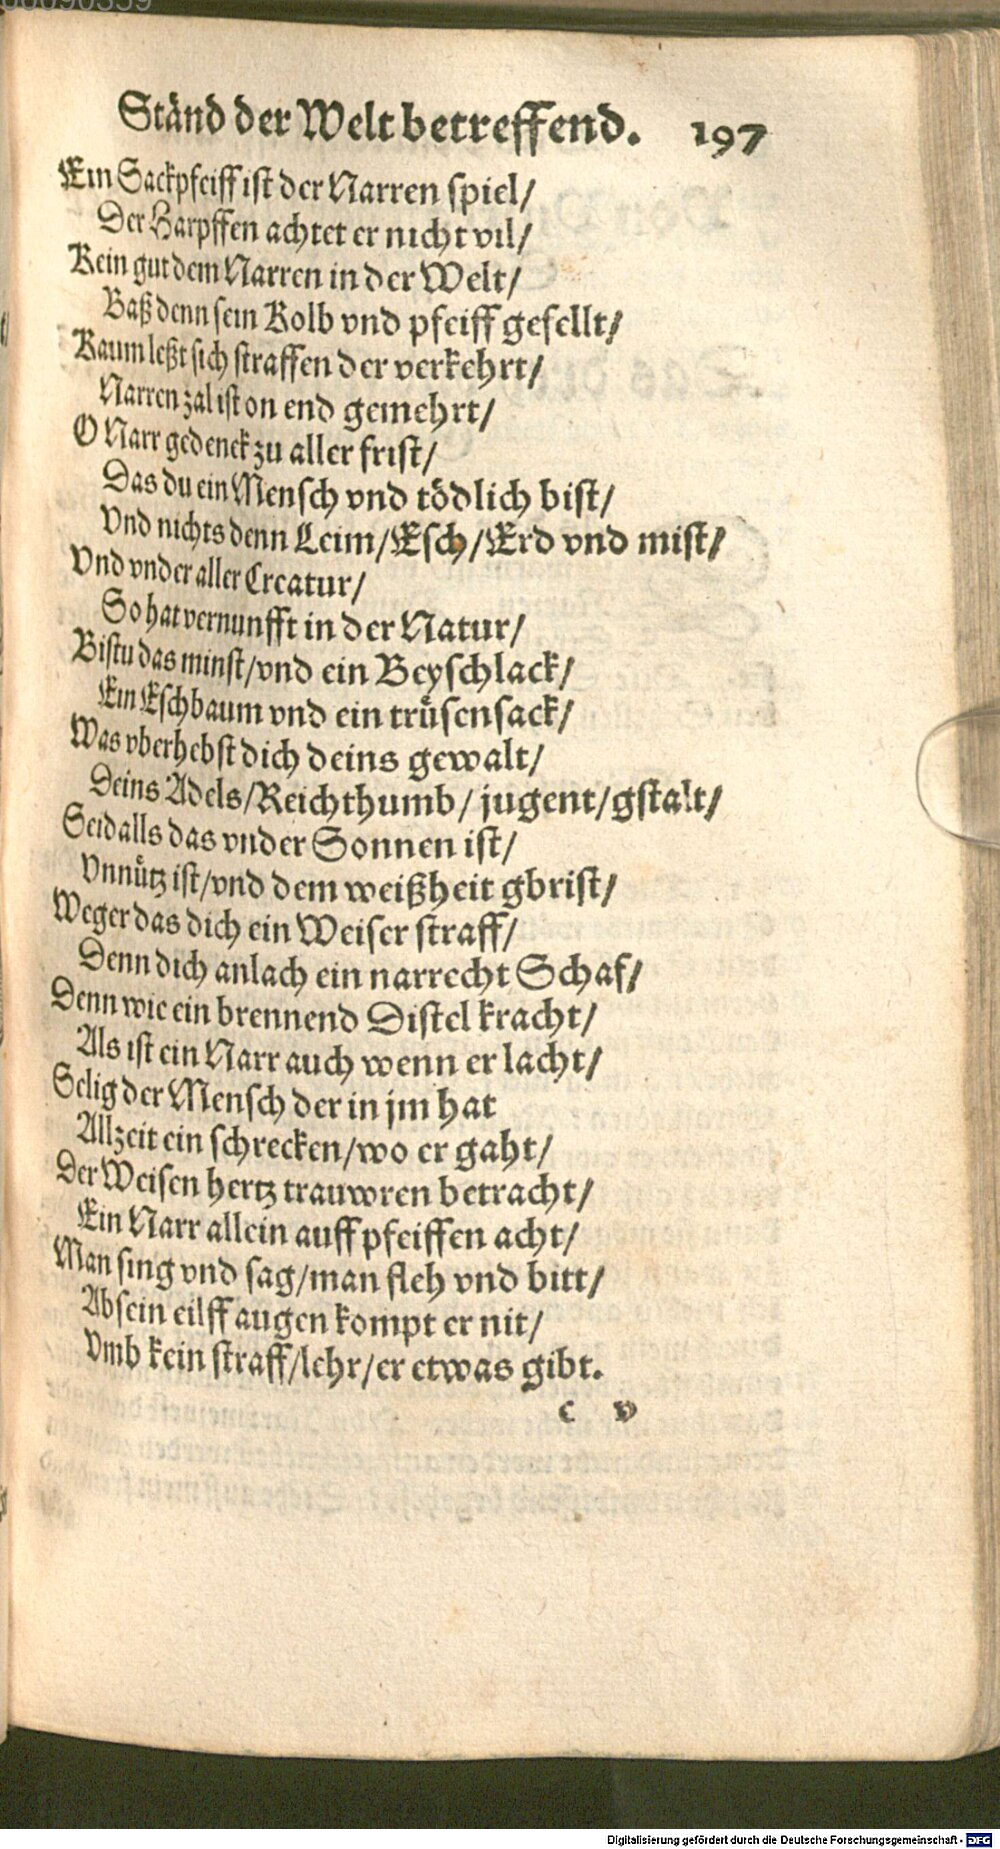 Ständ der Welt betreffend. 197
Ein Sackpfeiff ist der Narren spiel/
Der Harpffen achtet er nicht vil/
Kein gut dem Narren in der Welt/
Baß denn sein Kolb vnd pfeiff gefellt/
Kaum leßt sich straffen der verkehrt/
Narren zal ist on end gemehrt/
O Narr gedenck zu aller frist/
Das du ein Mensch vnd tödlich bist/
Vnd nichts denn Leim/Esch/Erd vnd mist/
Vnd vnder aller Creatur/
So hat vernunfft in der Natur/
Bistu das minst/vnd ein Beyschlack/
Ein Eschbaum vnd ein trüsensack/
Was vberhebst dich deins gewalt/
Deins Adels/Reichthumb/ jugent/gstalt/
Seid alls das vnder Sonnen ist/
Vnnütz ist/vnd dem weißheit gbrist/
Weger das dich ein Weiser straff/
Denn dich anlach ein narrecht Schaf/
Denn wie ein brennend Distel kracht/
Als ist ein Narr auch wenn er lacht/
Selig der Mensch der in jm hat
Allzeit ein schrecken/wo er gaht/
Der Weisen hertz trauwren betracht/
Ein Narr allein auff pfeiffen acht/
Man sing vnd sag/man fleh vnd bitt/
Ab sein eilff augen kompt er nit/
Vmb kein straff/lehr/er etwas gibt.
c v
Digitalisierung gefördert durch die Deutsche Forschungsgemeinschaft - DFG